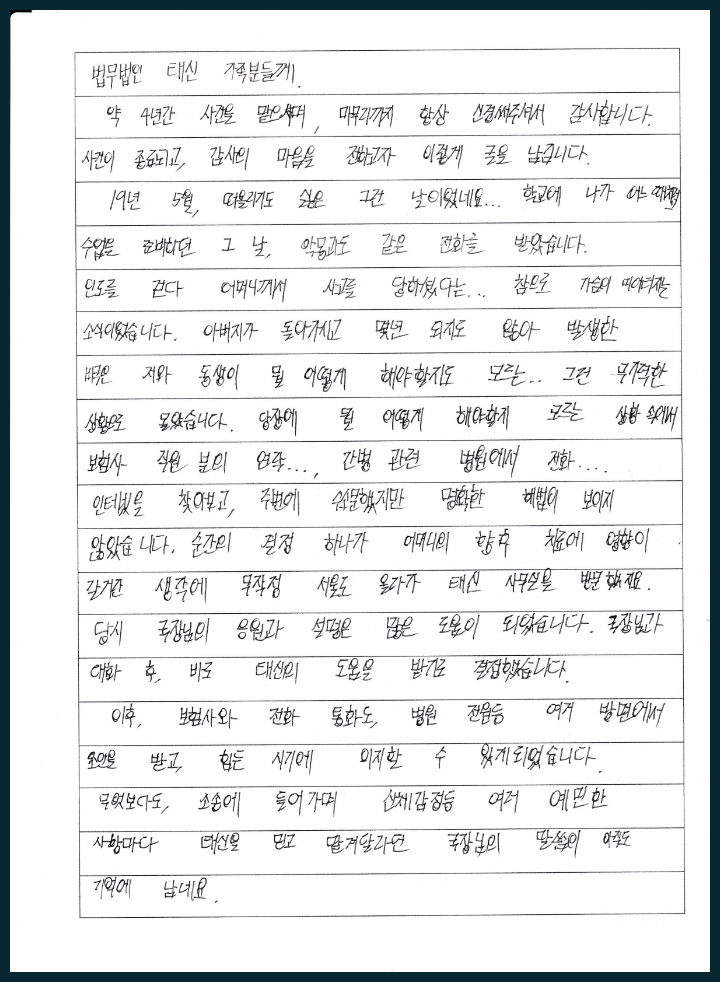 법무법인 태신 가족분들께.
약 4년간 사건을 맡으시며, 마무리까지 항상 신경써주셔서 감사합니다.
사건이 종료되고, 감사의 마음을 전하고자 이렇게 글을 남깁니다.
19년 5월, 떠올리기도 싫은 그런 날이었네요... 학교에 나가 어느 때처럼
수업을 준비하던 그 날, 악몽과도 같은 전화를 받았습니다.
인도를 걷다 어머니께서 사고를 당하셨다는... 참으로 가슴이 미어터지는
소식이었습니다. 아버지가 돌아가시고 몇년 되지도 않아 발생한
비극은 저와 동생이 뭘 어떻게 해야할지도 모르는.. 그런 무기력한
상황으로 몰았습니다. 당장에 뭘 어떻게 해야할지 모르는 상황 속에서
보험사 직원 분의 연락..., 간병 관련 병원에서 전화....
인터넷을 찾아보고, 주변에 수소문했지만 명확한 해법이 보이지
않았습니다. 순간의 결정 하나가 어머니의 향후 치료에 영향이
갈거란 생각에 무작정 서울로 올라가 태신 사무실을 방문했지요.
당시 국장님의 응원과 설명은 많은 도움이 되었습니다. 국장님과
대화 후, 바로 태신의 도움을 받기로 결정했습니다.
이후, 보험사와 전화 통화도, 병원 전원등 여러 방면에서
조언을 받고, 힘든 시기에 의지할 수 있게되었습니다.
무엇보다도, 소송에 들어가며 신체감정등 여러 예민한
사항마다 태신을 믿고 맡겨달라던 국장님의 말씀이 아직도
기억에 남네요.